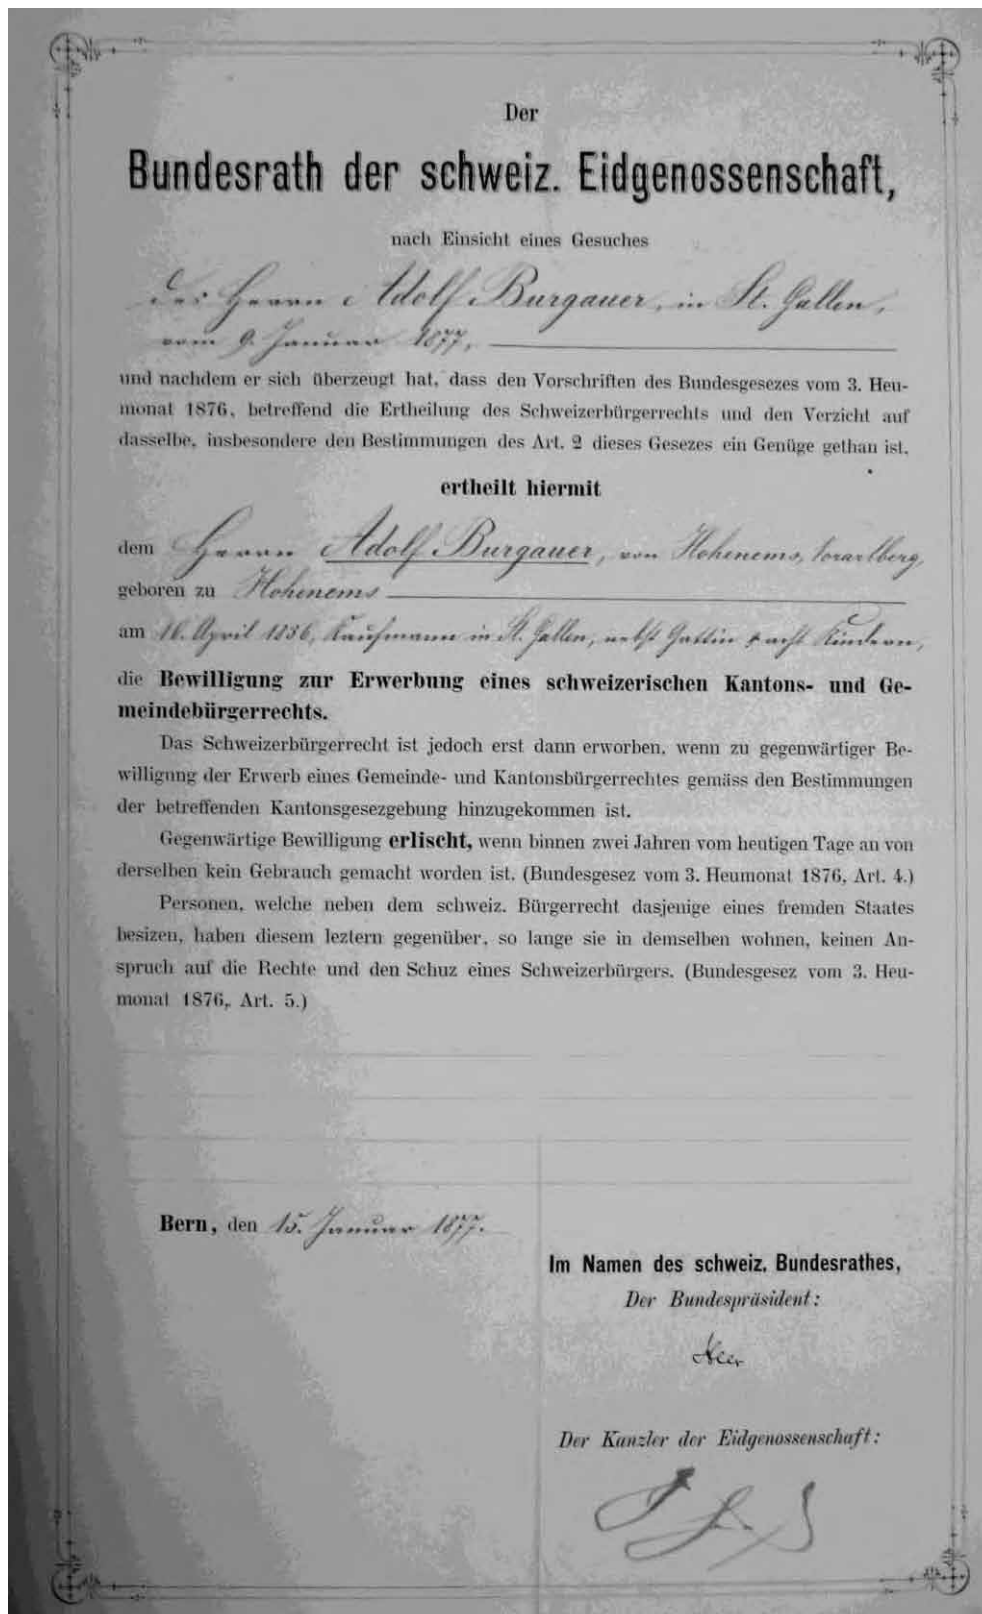 Der
Bundesrath der schweiz. Eidgenossenschaft,
nach Einsicht eines Gesuches
des Herrn Adolf Burgauer, in St. Gallen,
vom 9. Januar 1877,
und nachdem er sich überzeugt hat, dass den Vorschriften des Bundesgesezes vom 3. Heu-
monat 1876, betreffend die Ertheilung des Schweizerbürgerrechts und den Verzicht auf
dasselbe, insbesondere den Bestimmungen des Art. 2 dieses Gesezes ein Genüge gethan ist,
ertheilt hiermit
dem Herrn Adolf Burgauer, von Hohenems, Vorarlberg,
geboren zu Hohenems
am April 1836, Kaufmann in St. Gallen, nebst Gattin & acht Kindern,
die Bewilligung zur Erwerbung eines schweizerischen Kantons- und Ge-
meindebürgerrechts.
Das Schweizerbürgerrecht ist jedoch erst dann erworben, wenn zu gegenwärtiger Be-
willigung der Erwerb eines Gemeinde- und Kantonsbürgerrechtes gemäss den Bestimmungen
der betreffenden Kantonsgesezgebung hinzugekommen ist.
Gegenwärtige Bewilligung erlischt, wenn binnen zwei Jahren vom heutigen Tage an von
derselben kein Gebrauch gemacht worden ist. (Bundesgesez vom 3. Heumonat 1876, Art. 4.)
Personen, welche neben dem schweiz. Bürgerrecht dasjenige eines fremden Staates
besizen, haben diesem leztern gegenüber, so lange sie in demselben wohnen, keinen An-
spruch auf die Rechte und den Schuz eines Schweizerbürgers. (Bundesgesez vom 3. Heu-
monat 1876, Art. 5.)
Bern, den 15. Januar 1877.
Im Namen des schweiz. Bundesrathes,
Der Bundespräsident:
Heer
Der Kanzler der Eidgenossenschaft: